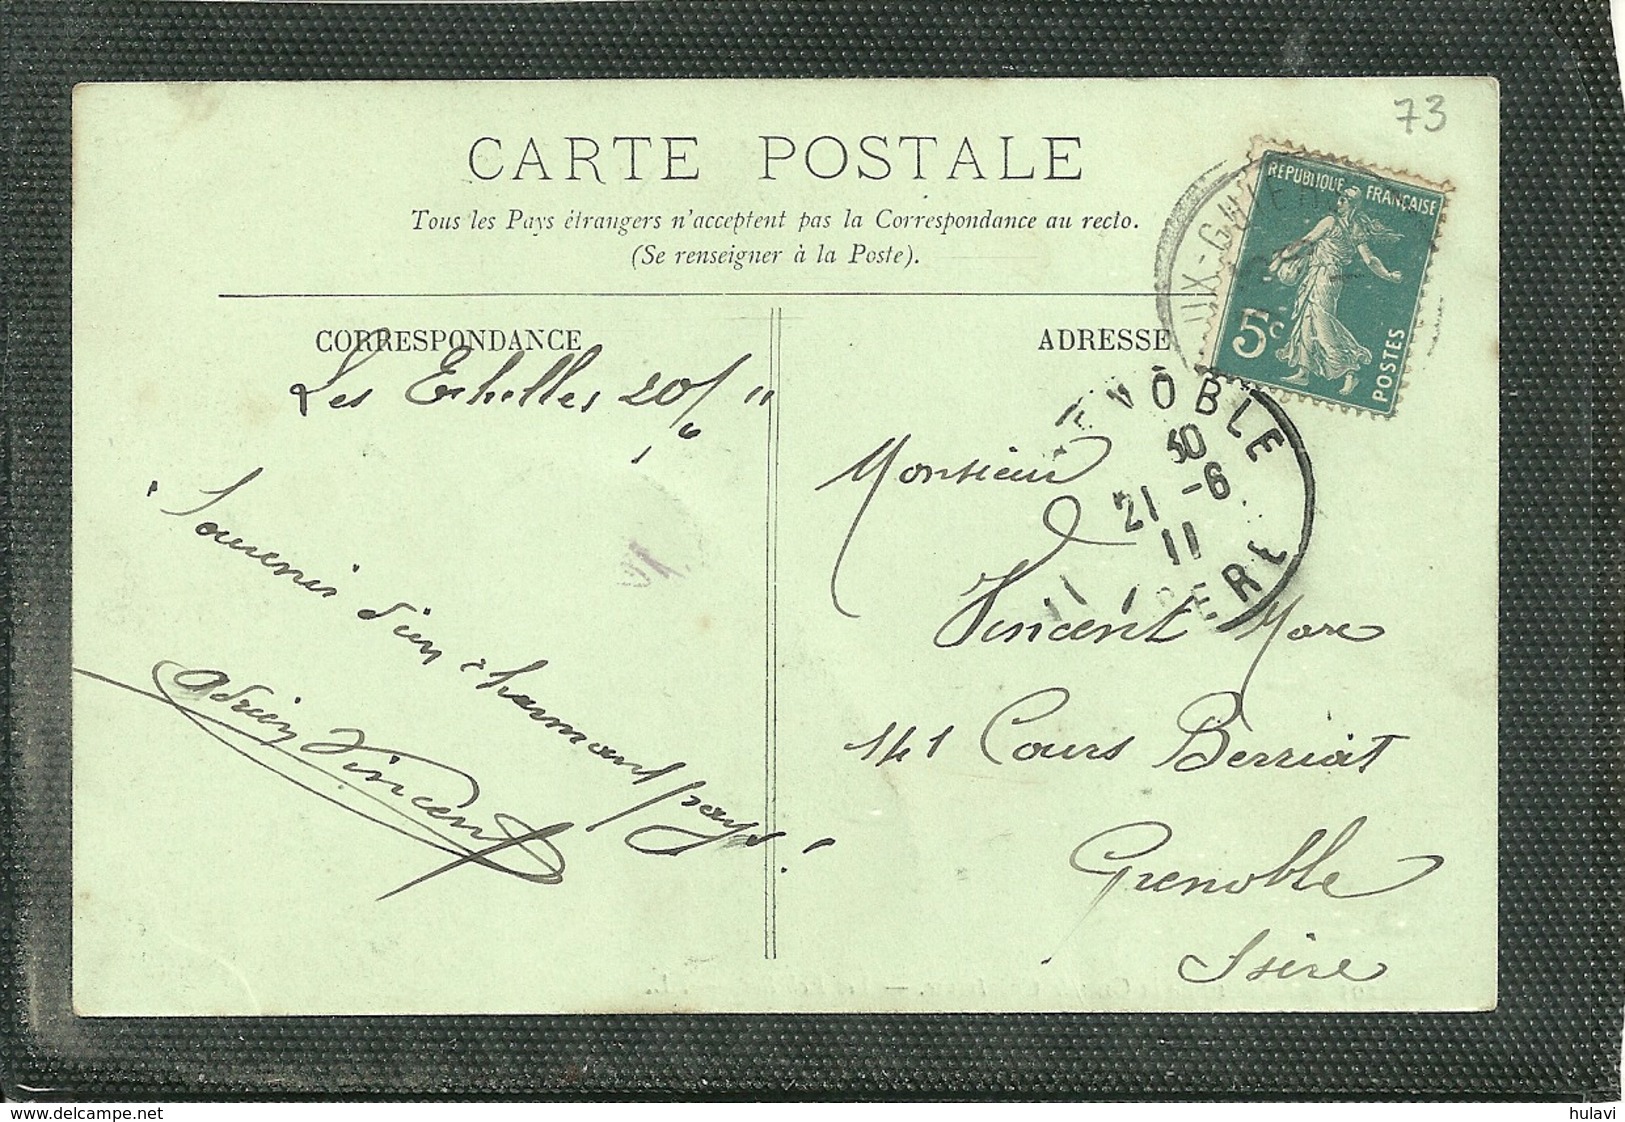 73
CARTE POSTALE
Tous les Pays étrangers n'acceptent pas la Correspondance au recto.
(Se renseigner à la Poste).
RÉPUBLIQUE FRANÇAISE
5c
POSTES
UX-GUIE
CORRESPONDANCE
ADRESSE
Les Echelles 20/6 11
ENOBLE
30
21 -6
11
SERE
Monsieur
Vincent Marc
141 Cours Berriat
Grenoble
Isère
Souvenir d'un charmant pays!
Adrien Vincent
hulavi
www.delcampe.net